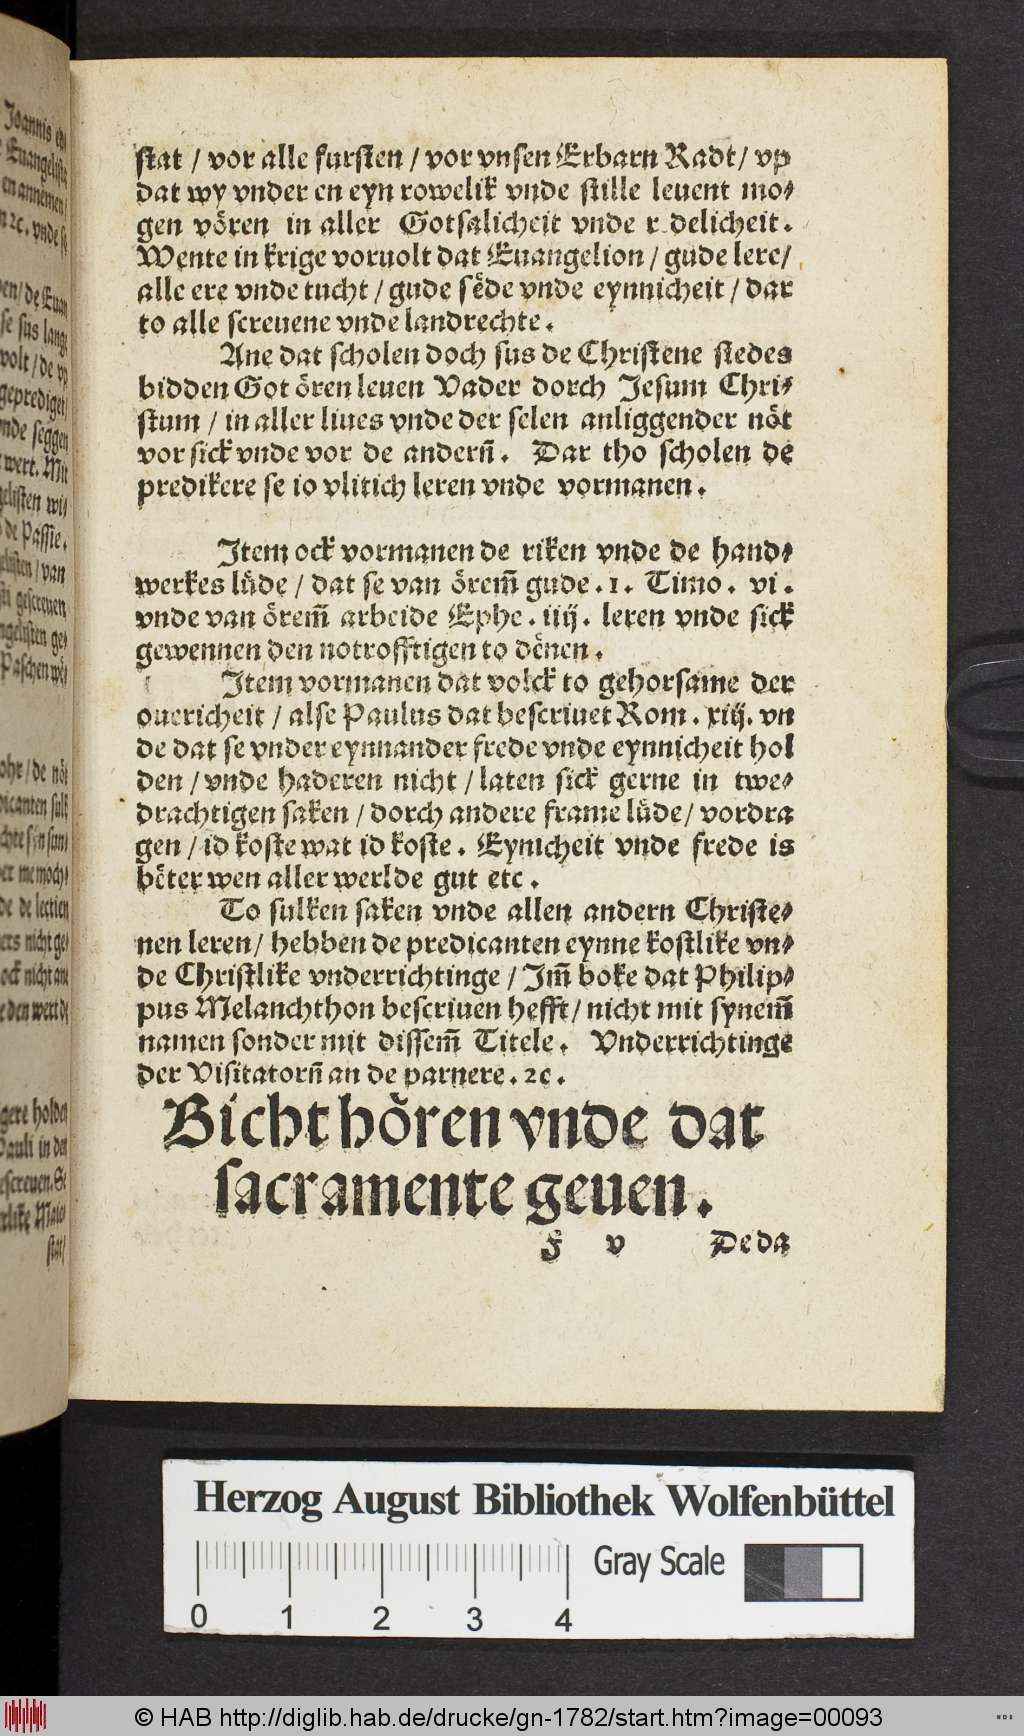 Joannis
Euangeliste
en annemen/
n ꝛc. vnde se
en/de Euan
se sus lange
volt/de vp
geprediget/
nde seggen
wert. Mit
gelisten wi⸗
de Passie.
gelisten/van
gescreuen
ngelisten ge⸗
Paschen
de nöt
dicanten sulk
mochte syn sun⸗
er me moch⸗
de de lectien
ers nicht ge⸗
ock nicht ane
e den wert de
gere holden
Pauli in der
escreuen. Se
erlike Maie⸗
stat/
stat / vor alle fursten / vor vnsen Erbarn Radt/ vp
dat wy vnder en eyn rowelik vnde stille leuent mo⸗
gen vören in aller Gotsalicheit vnde r delicheit.
Wente in krige voruolt dat Euangelion / gude lere/
alle ere vnde tucht / gude sede vnde eynnicheit / dar
to alle screuene vnde landrechte.
Ane dat scholen doch sus de Christene stedes
bidden Got ören leuen Vader dorch Jesum Chri⸗
stum / in aller liues vnde der selen anliggender nöt
vor sick vnde vor de anderñ. Dar tho scholen de
predikere se io vlitich leren vnde vormanen.
Item ock vormanen de riken vnde de hand⸗
werkes lüde / dat se van örem̄ gude .1. Timo. vi.
vnde van örem̄ arbeide Ephe. iiij. leren vnde sick
gewennen den notrofftigen to denen.
Item vormanen dat volck to gehorsame der
ouericheit / alse Paulus dat bescriuet Rom. xiij. vn
de dat se vnder eynnander frede vnde eynnicheit hol
den / vnde haderen nicht / laten sick gerne in twe⸗
drachtigen saken / dorch andere frame lüde/ vordra
gen / id koste wat id koste. Eynicheit vnde frede is
beter wen aller werlde gut etc.
To sulken saken vnde allen andern Christe⸗
nen leren/ hebben de predicanten eynne kostlike vn⸗
de Christlike vnderrichtinge / Jm̄ boke dat Philip⸗
pus Melanchthon bescriuen hefft/ nicht mit synem̄
namen sonder mit dissem̄ Titele. Vnderrichtinge
der Visitatorñ an de parnere. ꝛc.
Bicht hören vnde dat
sacramente geuen.
F v Deda
Herzog August Bibliothek Wolfenbüttel
Gray Scale
0 1 2 3 4
© HAB http://diglib.hab.de/drucke/gn-1782/start.htm?image=00093